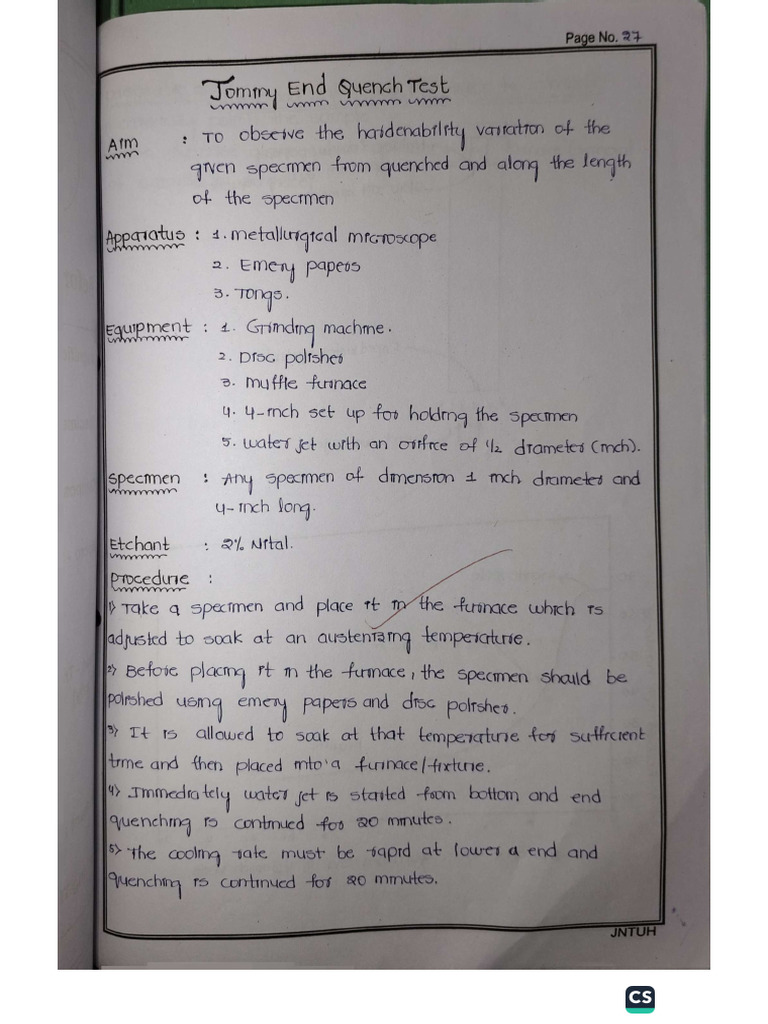 Page No. 27
Jommy End Quench Test
Aim : To observe the hardenability variation of the
given specimen from quenched and along the length
of the specimen
Apparatus : 1. metallurigical microscope
2. Emery papers
3. Tongs.
Equipment : 1. Grinding machine.
2. Disc polisher
3. Muffle furnace
4. 4-inch set up for holding the specimen
5. water jet with an orifice of 1/2 diameter (inch).
Specimen : Any specimen of dimension 1 inch diameter and
4-inch long.
Etchant : 2% Nital.
Procedure :
1) Take a specimen and place it in the furnace which is
adjusted to soak at an austenizing temperature.
2) Before placing it in the furnace, the specimen should be
polished using emery papers and disc polisher.
3) It is allowed to soak at that temperature for sufficient
time and then placed into a furnace/fixture.
4) Immediately water jet is started from bottom and end
quenching is continued for 20 minutes.
5) The cooling rate must be rapid at lower a end and
quenching is continued for 20 minutes.
JNTUH
CS